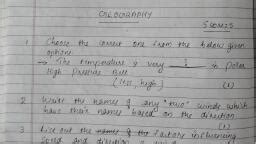 GEOGRAPHY
5 scores
1 Choose the correct one from the below given
options
→ The temperature is very ___?___ in Polar
High Pressure Belt
(less, high) (1)
2 Write the names of any "two" winds which
have their names based on the direction
(2)
3 List out the names of the factors influencing
speed and direction of